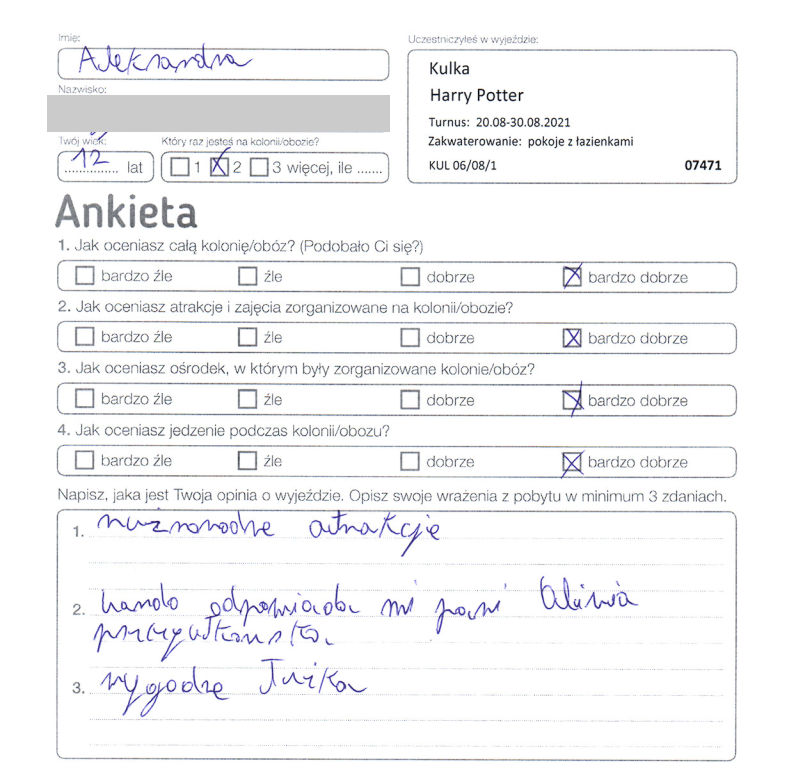 Imię:
Aleksandra
Nazwisko:
Twój wiek:
12 lat
Który raz jesteś na kolonii/obozie?
1 2 3 więcej, ile .......
Uczestniczyłeś w wyjeździe:
Kulka
Harry Potter
Turnus: 20.08-30.08.2021
Zakwaterowanie: pokoje z łazienkami
KUL 06/08/1 07471
Ankieta
1. Jak oceniasz całą kolonię/obóz? (Podobało Ci się?)
bardzo źle źle dobrze bardzo dobrze
2. Jak oceniasz atrakcje i zajęcia zorganizowane na kolonii/obozie?
bardzo źle źle dobrze bardzo dobrze
3. Jak oceniasz ośrodek, w którym były zorganizowane kolonie/obóz?
bardzo źle źle dobrze bardzo dobrze
4. Jak oceniasz jedzenie podczas kolonii/obozu?
bardzo źle źle dobrze bardzo dobrze
Napisz, jaka jest Twoja opinia o wyjeździe. Opisz swoje wrażenia z pobytu w minimum 3 zdaniach.
1. atrakcje
2. odpowiada mi pani
3. wygodne